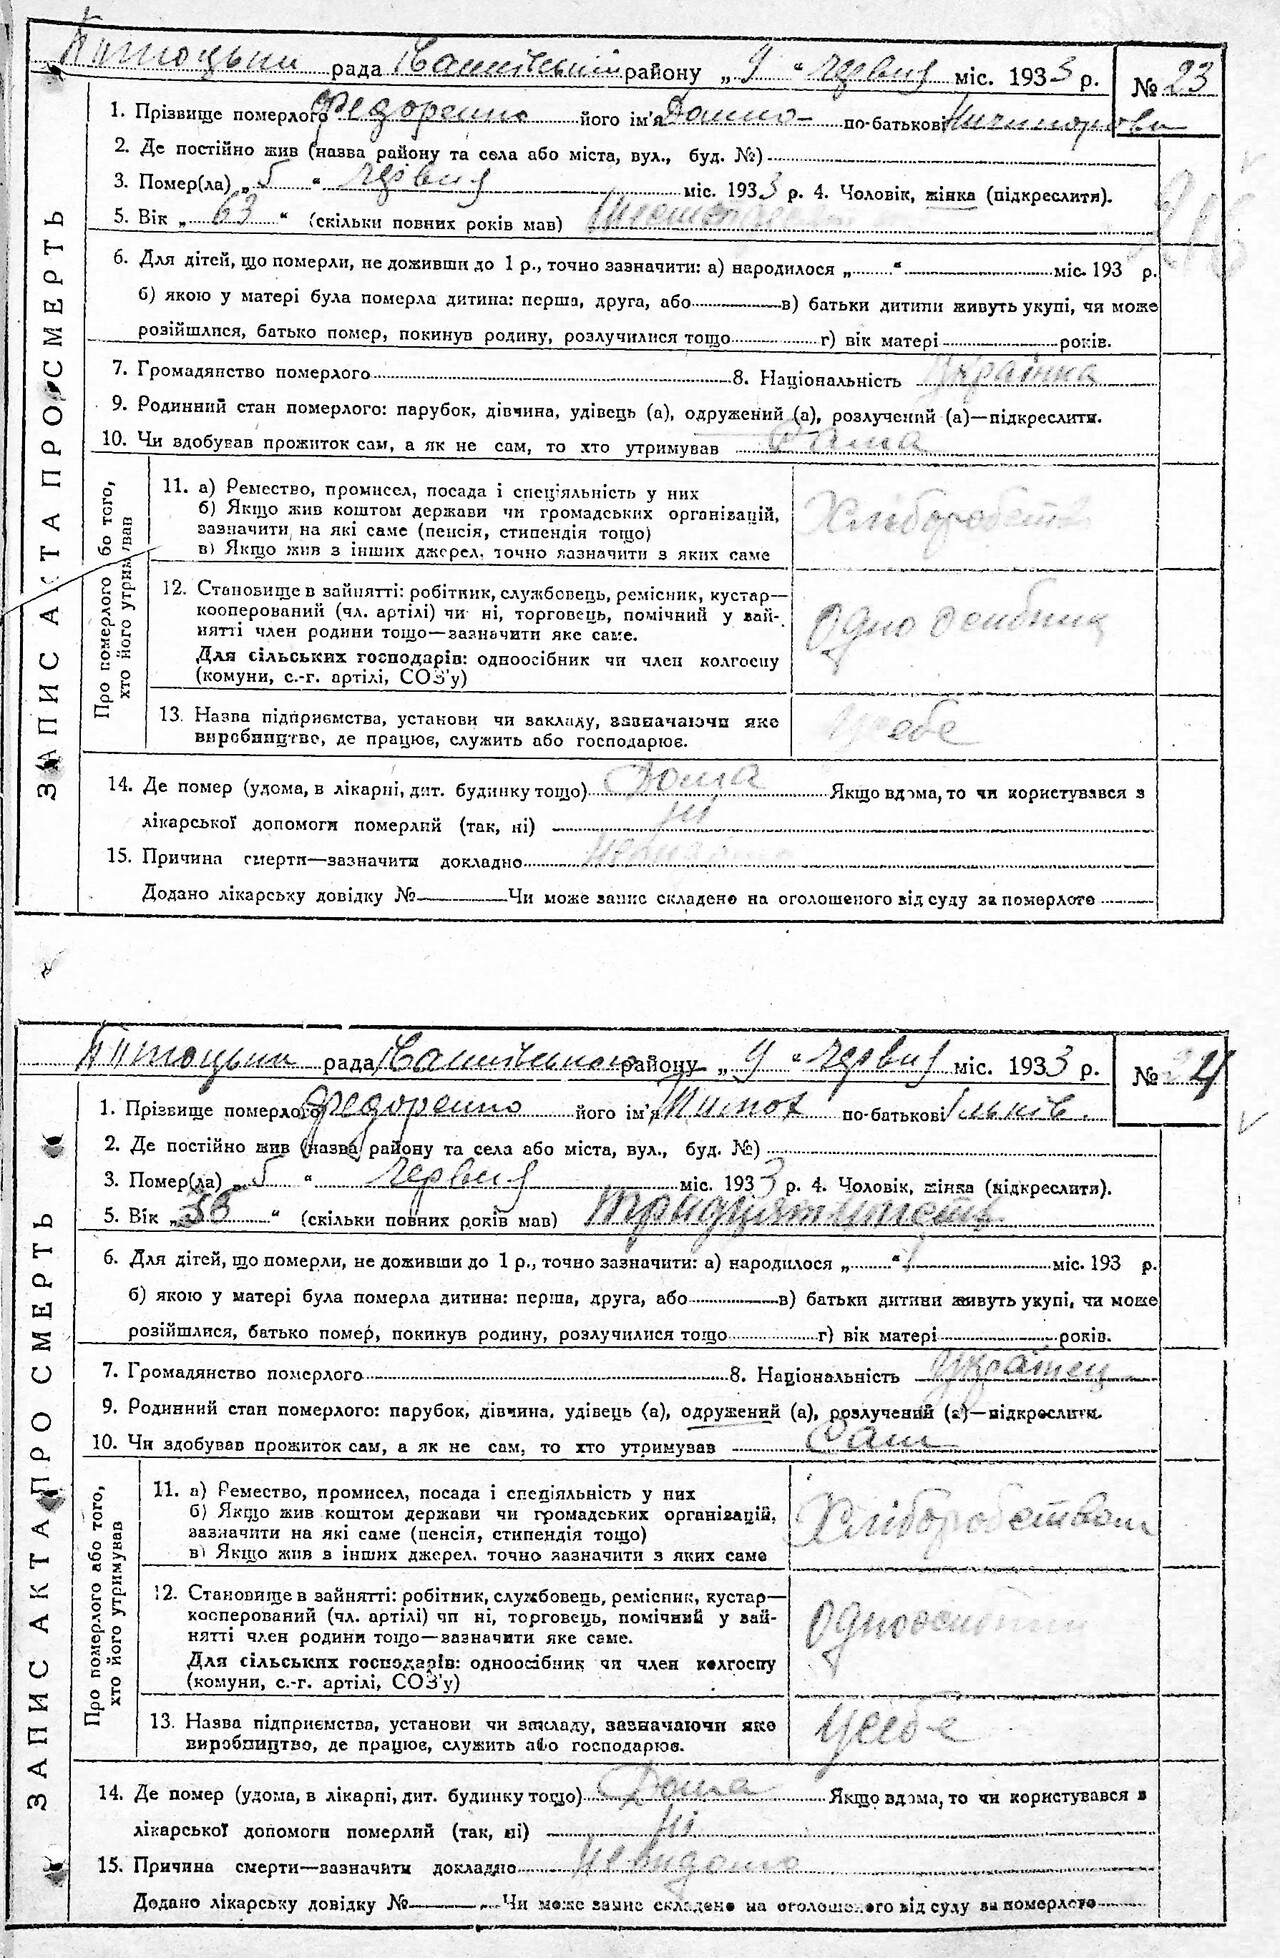 рада району „ 9 “ червня міс. 1933 р. № 23
1. Прізвище померлого Федоренко його ім'я по-батькові
2. Де постійно жив (назва району та села або міста, вул., буд. №)
3. Помер(ла) „ 5 “ червня міс. 1933 р. 4. Чоловік, жінка (підкреслити).
5. Вік „ 63 “ (скільки повних років мав)
6. Для дітей, що померли, не доживши до 1 р., точно зазначити: а) народилося „ “ міс. 193 р.
б) якою у матері була померла дитина: перша, друга, або в) батьки дитини живуть укупі, чи може
розійшлися, батько помер, покинув родину, розлучилися тощо г) вік матері років.
7. Громадянство померлого 8. Національність Українка
9. Родинний стан померлого: парубок, дівчина, удівець (а), одружений (а), розлучений (а)—підкреслити.
10. Чи здобував прожиток сам, а як не сам, то хто утримував Сама
ЗАПИС АКТА ПРО СМЕРТЬ
Про померлого або того,
хто його утримував
11. а) Ремество, промисел, посада і спеціяльність у них
б) Якщо жив коштом держави чи громадських організацій,
зазначити на які саме (пенсія, стипендія тощо)
в) Якщо жив з інших джерел, точно зазначити з яких саме
Хліборобств
12. Становище в зайнятті: робітник, службовець, ремісник, кустар—
кооперований (чл. артілі) чи ні, торговець, помічний у зай-
нятті член родини тощо—зазначити яке саме.
Для сільських господарів: одноосібник чи член колгоспу
(комуни, с.-г. артілі, СОЗ'у)
Одноосібник
13. Назва підприємства, установи чи закладу, зазначаючи яке
виробництво, де працює, служить або господарює.
Усебе
14. Де помер (удома, в лікарні, дит. будинку тощо) Дома Якщо вдома, то чи користувався з
лікарської допомоги померлий (так, ні) Ні
15. Причина смерти—зазначити докладно Невидомо
Додано лікарську довідку № Чи може запис складено на оголошеного від суду за померлого
рада району „ 9 “ червня міс. 1933 р. № 24
1. Прізвище померлого Федоренко його ім'я Тимох по-батькові
2. Де постійно жив (назва району та села або міста, вул., буд. №)
3. Помер(ла) „ 5 “ червня міс. 1933 р. 4. Чоловік, жінка (підкреслити).
5. Вік „ “ (скільки повних років мав)
6. Для дітей, що померли, не доживши до 1 р., точно зазначити: а) народилося „ “ міс. 193 р.
б) якою у матері була померла дитина: перша, друга, або в) батьки дитини живуть укупі, чи може
розійшлися, батько помер, покинув родину, розлучилися тощо г) вік матері років.
7. Громадянство померлого 8. Національність Українец
9. Родинний стан померлого: парубок, дівчина, удівець (а), одружений (а), розлучений (а)—підкреслити.
10. Чи здобував прожиток сам, а як не сам, то хто утримував Сам
ЗАПИС АКТА ПРО СМЕРТЬ
Про померлого або того,
хто його утримував
11. а) Ремество, промисел, посада і спеціяльність у них
б) Якщо жив коштом держави чи громадських організацій,
зазначити на які саме (пенсія, стипендія тощо)
в) Якщо жив з інших джерел, точно зазначити з яких саме
Хліборобством
12. Становище в зайнятті: робітник, службовець, ремісник, кустар—
кооперований (чл. артілі) чи ні, торговець, помічний у зай-
нятті член родини тощо—зазначити яке саме.
Для сільських господарів: одноосібник чи член колгоспу
(комуни, с.-г. артілі, СОЗ'у)
13. Назва підприємства, установи чи закладу, зазначаючи яке
виробництво, де працює, служить або господарює.
Усебе
14. Де помер (удома, в лікарні, дит. будинку тощо) Дома Якщо вдома, то чи користувався з
лікарської допомоги померлий (так, ні) Ні
15. Причина смерти—зазначити докладно Невидомо
Додано лікарську довідку № Чи може запис складено на оголошеного від суду за померлого